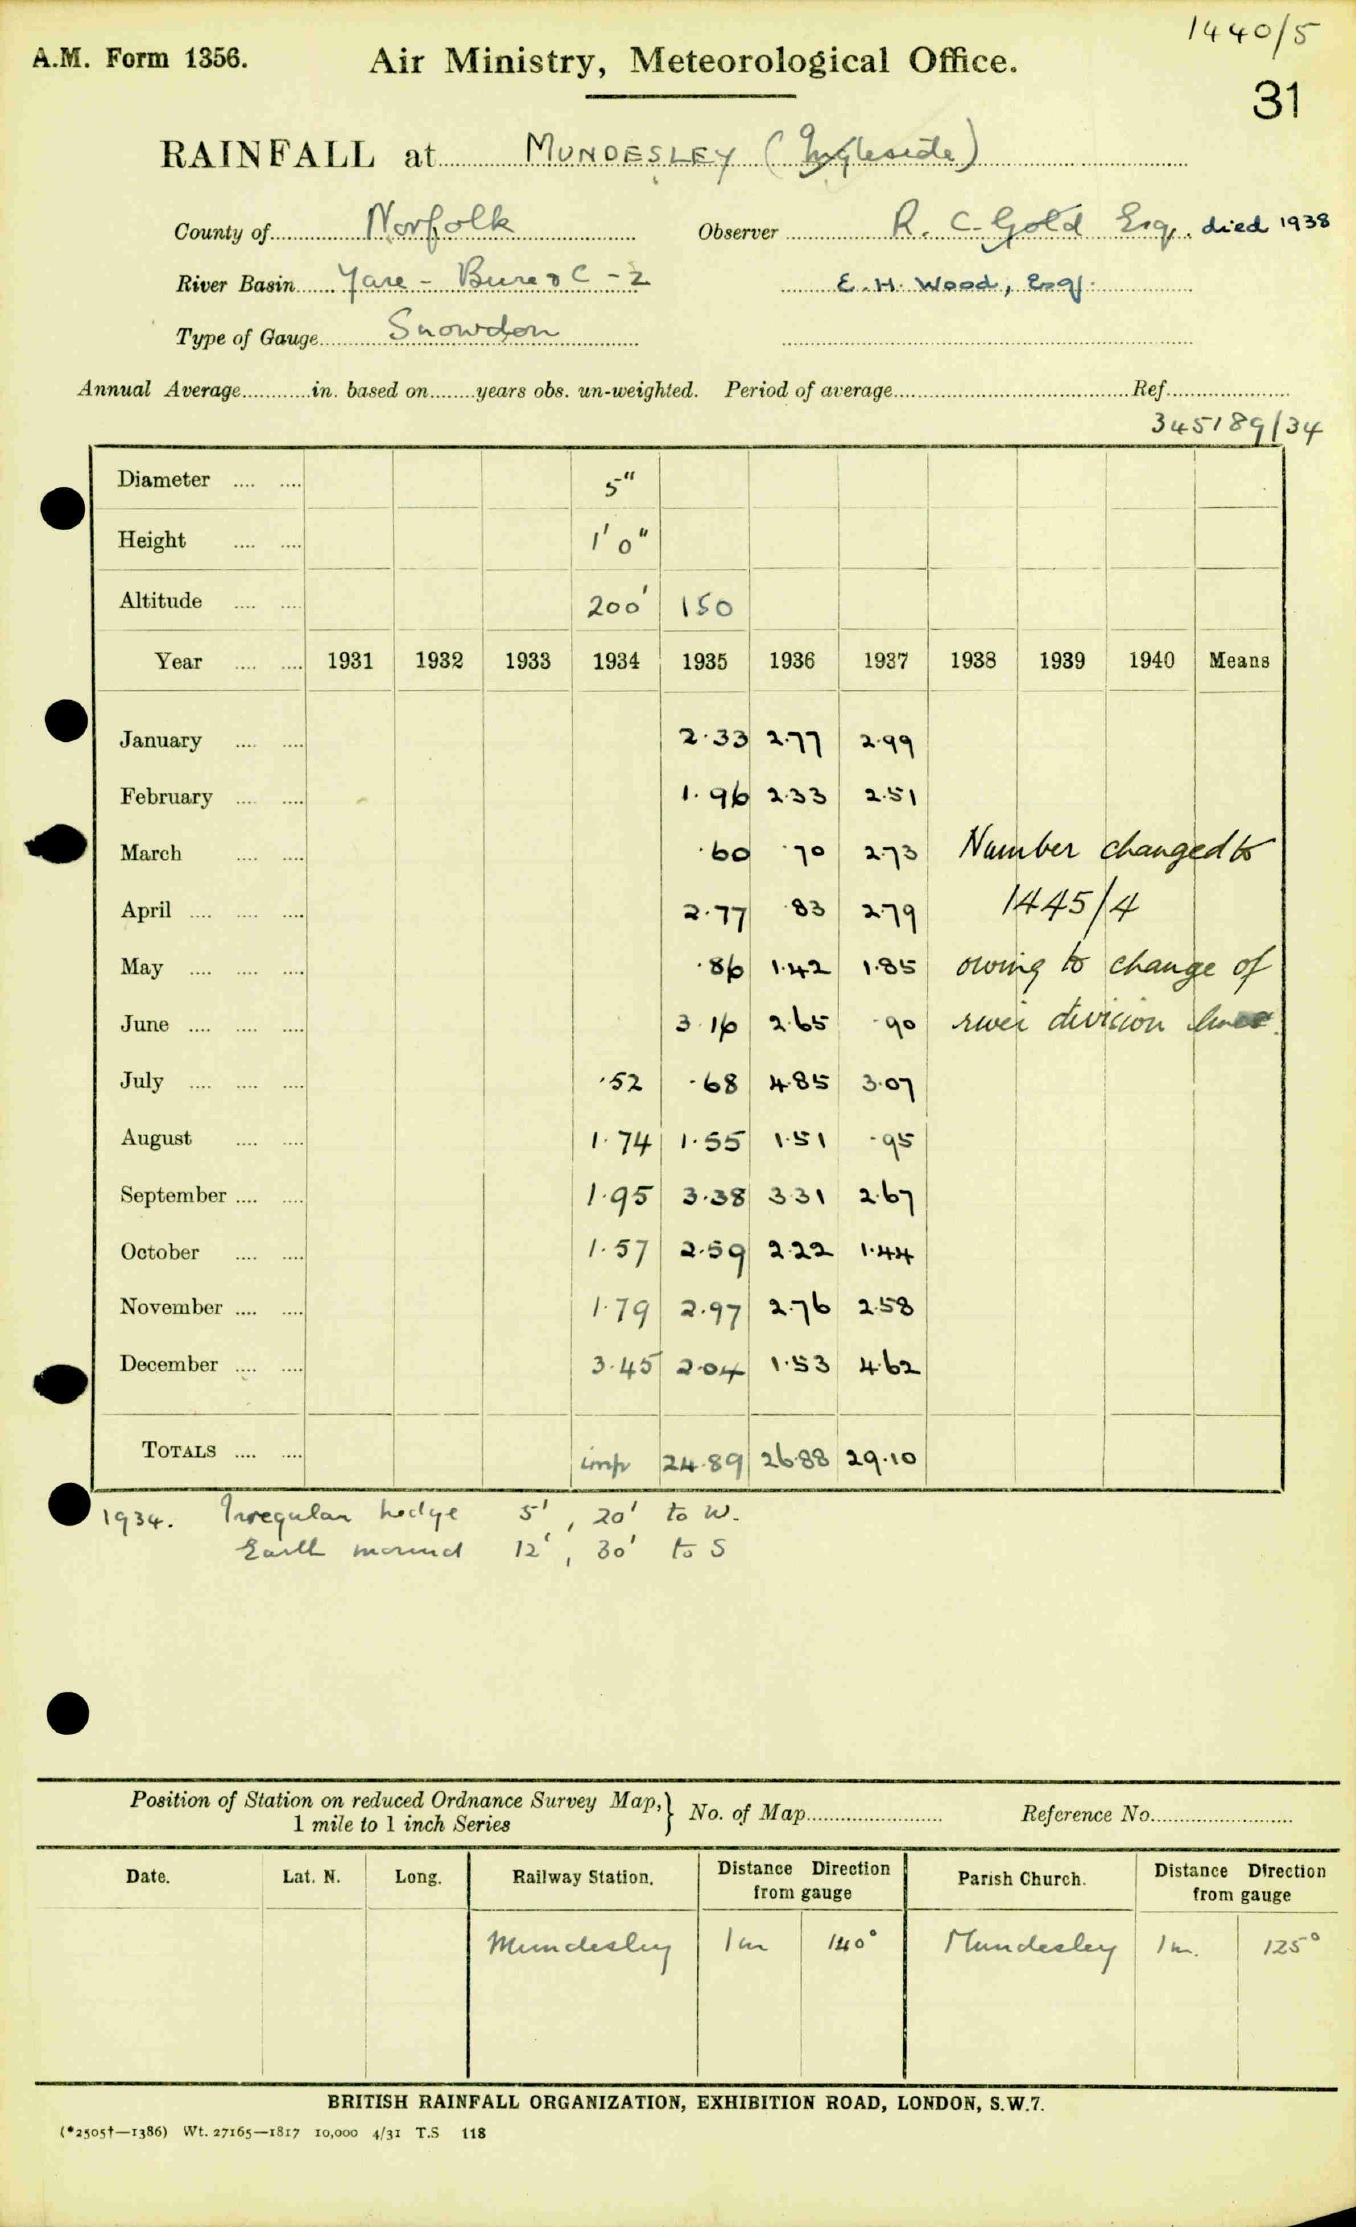 1440/5
A.M. Form 1356. Air Ministry, Meteorological Office.
31
RAINFALL at MUNDESLEY (Ingleside)
County of Norfolk Observer R. C. Gold Esq. died 1938
River Basin Yare - Bure & C - 2 E. H. Wood, Esq.
Type of Gauge Snowdon
Annual Average in. based on years obs. un-weighted. Period of average Ref.
345189/34
Diameter 5"
Height 1' 0"
Altitude 200' 150
Year 1931 1932 1933 1934 1935 1936 1937 1938 1939 1940 Means
January 2.33 2.77 2.99
February 1.96 2.33 2.51
March .60 .70 2.73 Number changed to
April 2.77 .83 2.79 1445/4
May .86 1.42 1.85 owing to change of
June 3.16 2.65 .90 river division lines.
July .52 .68 4.85 3.07
August 1.74 1.55 1.51 .95
September 1.95 3.38 3.31 2.67
October 1.57 2.59 2.22 1.44
November 1.79 2.97 2.76 2.58
December 3.45 2.04 1.53 4.62
TOTALS imp 24.89 26.88 29.10
1934. Irregular hedge 5', 20' to W.
Earth mound 12', 30' to S
Position of Station on reduced Ordnance Survey Map, } No. of Map Reference No.
1 mile to 1 inch Series
Date. Lat. N. Long. Railway Station. Distance Direction from gauge Parish Church. Distance Direction from gauge
Mundesley 1m 140° Mundesley 1m. 125°
BRITISH RAINFALL ORGANIZATION, EXHIBITION ROAD, LONDON, S.W.7.
(*2505†—1386) Wt. 27165—1817 10,000 4/31 T.S 118